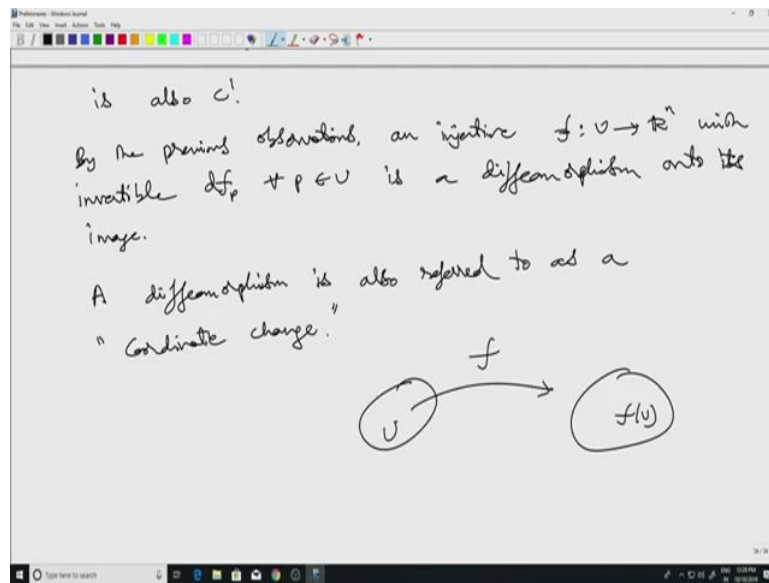 Preliminaries - Windows Journal
File Edit View Insert Actions Tools Help
B I
is also C¹.
By the previous observations, an injective f : U → ℝⁿ with
invertible df_p ∀ p ∈ U is a diffeomorphism onto its
image.
A diffeomorphism is also referred to as a
"Coordinate change."
f
U
f(U)
Type here to search
ENG